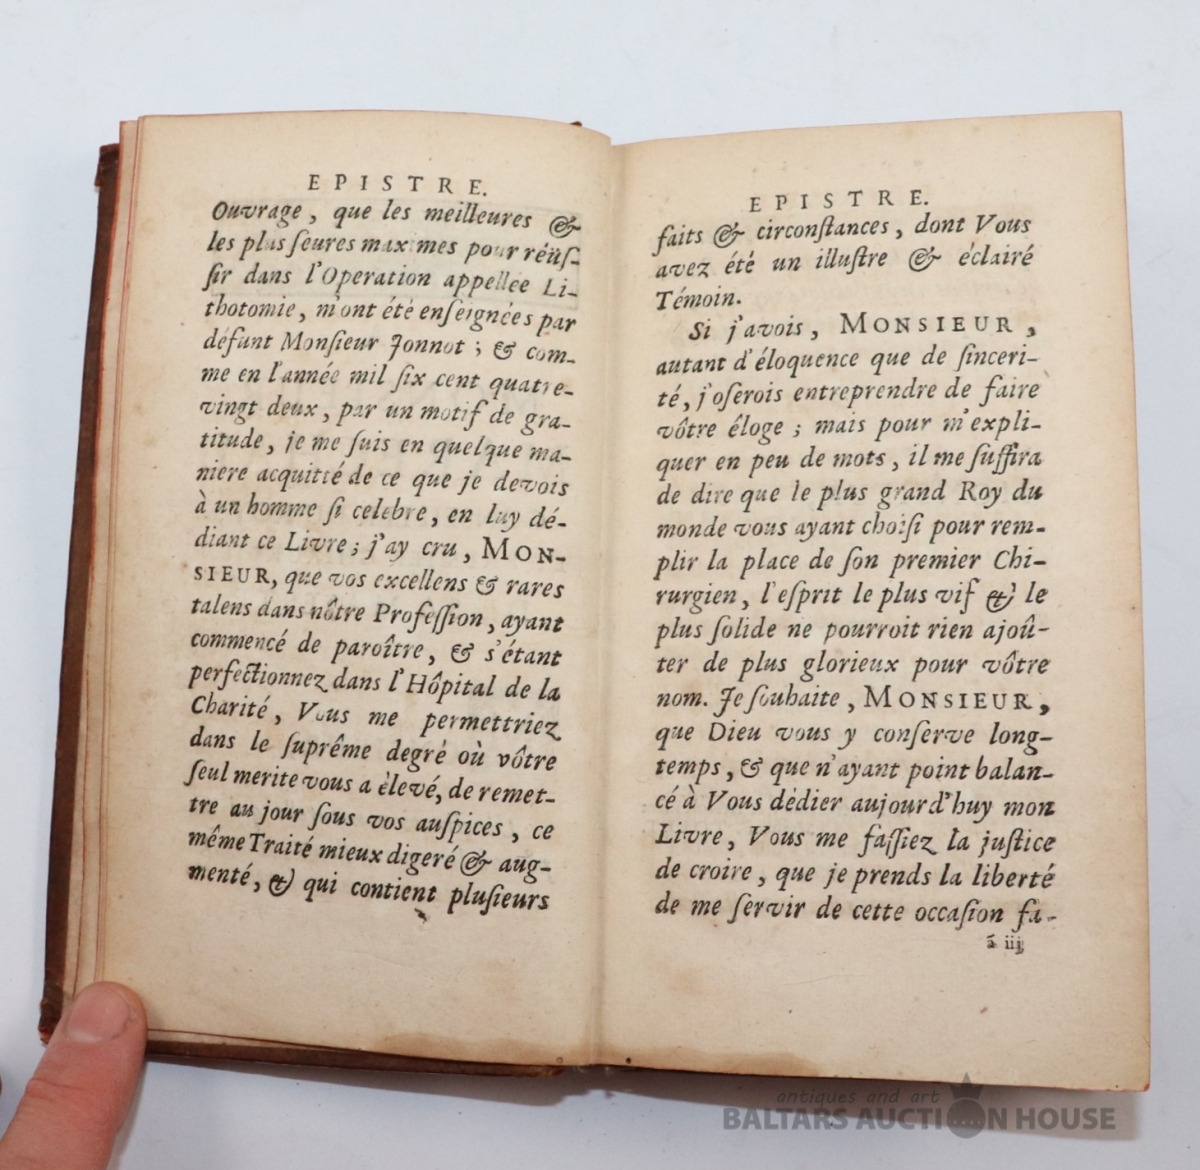 EPISTRE.
Ouvrage, que les meilleures &
les plus ſeures maximes pour réüſ-
ſir dans l'Operation appellée Li-
thotomie, m'ont été enſeignées par
défunt Monſieur Jonnot; & com-
me en l'année mil ſix cent quatre-
vingt deux, par un motif de gra-
titude, je me ſuis en quelque ma-
niere acquitté de ce que je devois
à un homme ſi celebre, en luy dé-
diant ce Livre; j'ay cru, MON-
SIEUR, que vos excellens & rares
talens dans nôtre Profeſſion, ayant
commencé de paroître, & s'étant
perfectionnez dans l'Hôpital de la
Charité, Vous me permettriez
dans le ſuprême degré où vôtre
ſeul merite vous a èlevé, de remet-
tre au jour ſous vos auſpices, ce
même Traité mieux digeré & aug-
menté, & qui contient pluſieurs
EPISTRE.
faits & circonſtances, dont Vous
avez été un illuſtre & éclairé
Témoin.
Si j'avois, MONSIEUR,
autant d'éloquence que de ſinceri-
té, j'oſerois entreprendre de faire
vôtre éloge; mais pour m'expli-
quer en peu de mots, il me ſuffira
de dire que le plus grand Roy du
monde vous ayant choiſi pour rem-
plir la place de ſon premier Chi-
rurgien, l'eſprit le plus vif & le
plus ſolide ne pourroit rien ajoû-
ter de plus glorieux pour vôtre
nom. Je ſouhaite, MONSIEUR,
que Dieu vous y conſerve long-
temps, & que n'ayant point balan-
cé à Vous dédier aujourd'huy mon
Livre, Vous me faſſiez la juſtice
de croire, que je prends la liberté
de me ſervir de cette occaſion fa-
ã iij
antiques and art
BALTARS AUCTION HOUSE